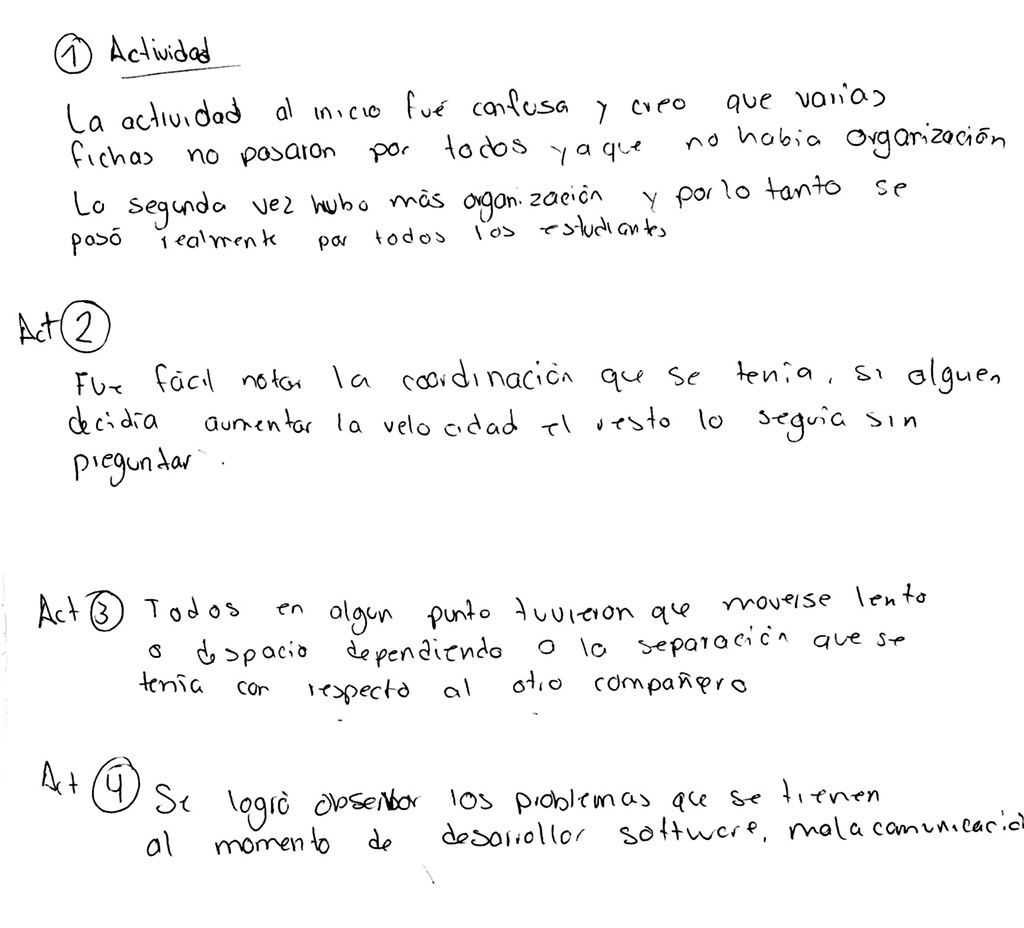 ① Actividad
La actividad al inicio fué confusa y creo que varias
fichas no pasaron por todos ya que no habia organización
La segunda vez hubo más organización y por lo tanto se
pasó realmente por todos los estudiantes
Act ②
Fue fácil notar la coordinación que se tenía, si alguen
decidía aumentar la velocidad el resto lo seguía sin
preguntar.
Act ③ Todos en algun punto tuvieron que moverse lento
o despacio dependiendo a la separación que se
tenía con respecto al otro compañero
Act ④ Se logró obserbar los problemas que se tienen
al momento de desarrollar software, mala comunicació